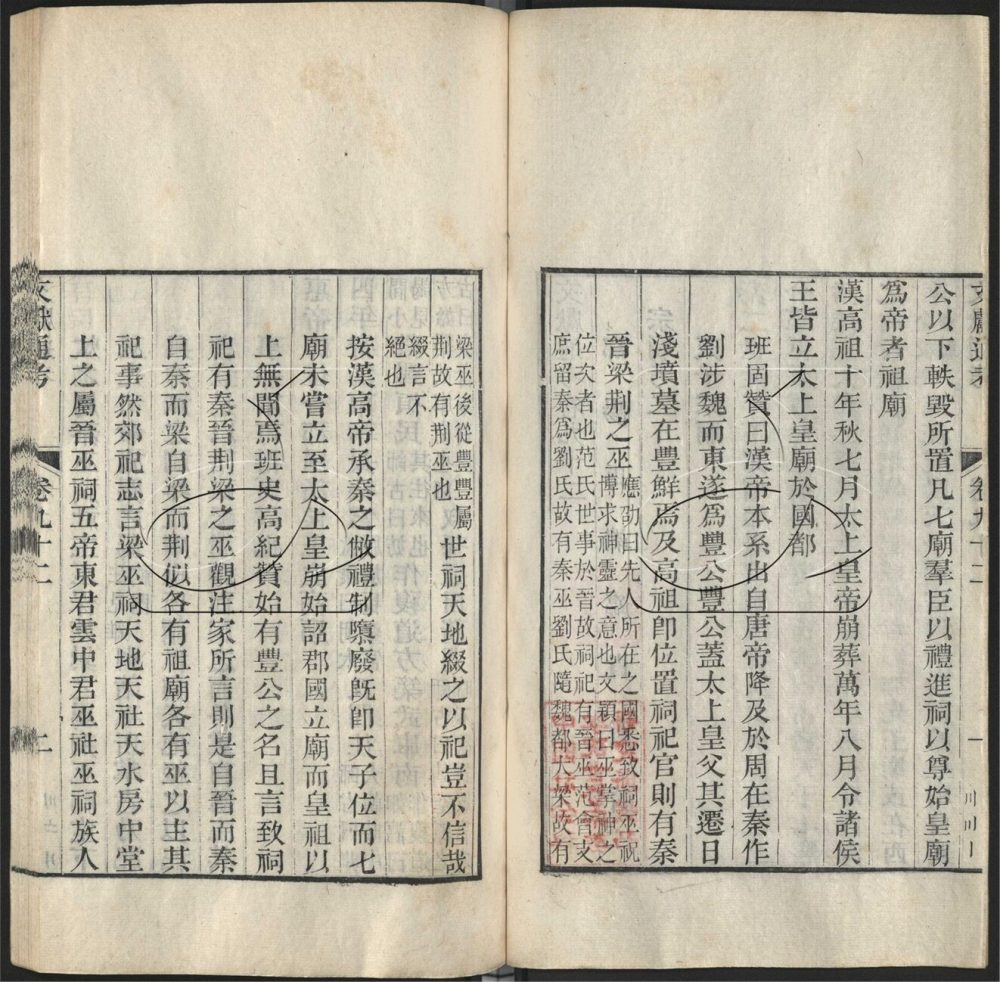 文獻通考 卷九十二 一
公以下軼毀所置凡七廟羣臣以禮進祠以尊始皇廟
爲帝者祖廟
漢高祖十年秋七月太上皇帝崩葬萬年八月令諸侯
王皆立太上皇廟於國都
班固贊曰漢帝本系出自唐帝降及於周在秦作
劉涉魏而東遂爲豐公豐公蓋太上皇父其遷日
淺墳墓在豐鮮焉及高祖卽位置祠祀官則有秦
晉梁荆之巫
應劭曰先人所在之國悉致祠巫祝
博求神靈之意也文穎曰巫掌神之
位次者也范氏世事於晉故祠祀有晉巫范會支
庶留秦爲劉氏故有秦巫劉氏隨魏都大梁故有
梁巫後從豐豐屬
荆故有荆巫也
世祠天地綴之以祀豈不信哉
綴言不
絕也
按漢高帝承秦之敝禮制隳廢旣卽天子位而七
廟未嘗立至太上皇崩始詔郡國立廟而皇祖以
上無聞焉班史高紀贊始有豐公之名且言致祠
祀有秦晉荆梁之巫觀注家所言則是自晉而秦
自秦而梁自梁而荆似各有祖廟各有巫以主其
祀事然郊祀志言梁巫祠天地天社天水房中堂
上之屬晉巫祠五帝東君雲中君巫社巫祠族人
文獻通考 卷九十二 二